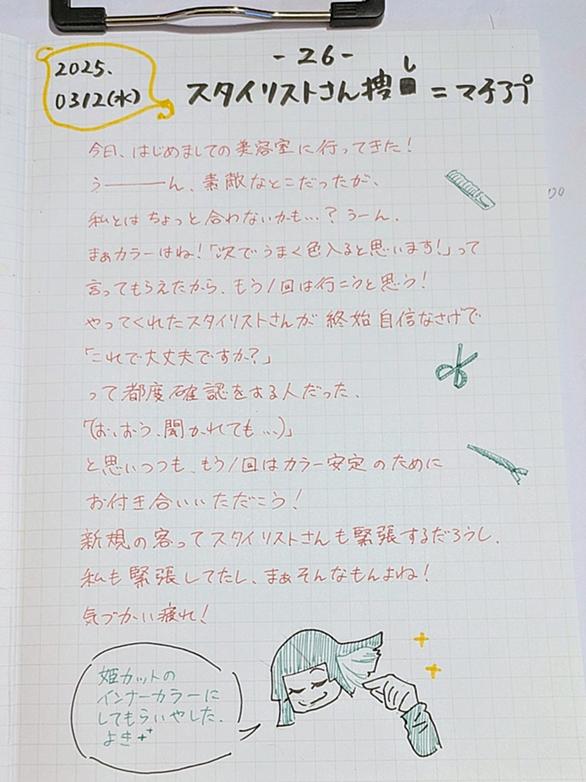 2025.
0312(水)
-26-
スタイリストさん捜し=マチアプ
今日、はじめましての美容室に行ってきた!
う———ん、素敵なとこだったが、
私とはちょっと合わないかも…?うーん。
まぁカラーはね!「次でうまく色入ると思います!」って
言ってもらえたから、もう1回は行こうと思う!
やってくれたスタイリストさんが終始自信なさげで
「これで大丈夫ですか?」
って都度確認をする人だった。
「(お、おう、聞かれても…)」
と思いつつも、もう1回はカラー安定のために
お付き合いいただこう!
新規の客ってスタイリストさんも緊張するだろうし、
私も緊張してたし、まぁそんなもんよね!
気づかい疲れ!
姫カットの
インナーカラーに
してもらいやした。
よき